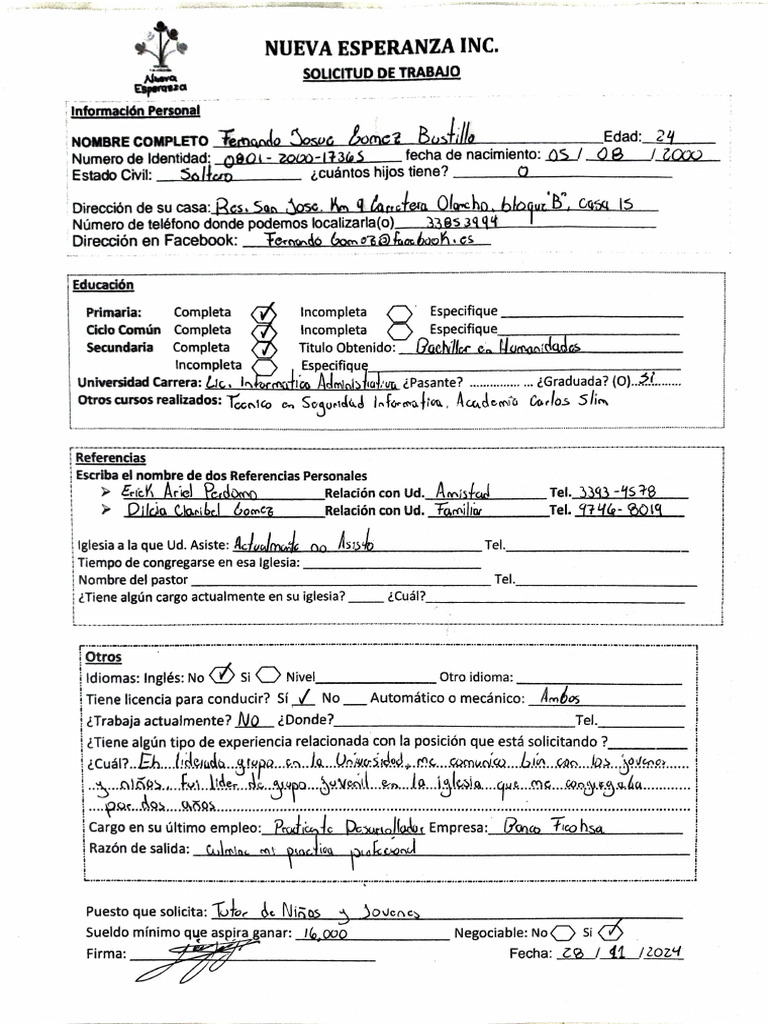 Nueva
Esperanza
NUEVA ESPERANZA INC.
SOLICITUD DE TRABAJO
Información Personal
NOMBRE COMPLETO Fernando Josue Gomez Bustillo Edad: 24
Numero de Identidad: 0801-2000-17365 fecha de nacimiento: 05 / 08 / 2000
Estado Civil: Soltero ¿cuántos hijos tiene? 0
Dirección de su casa: Res. San Jose. Km 9 Carretera Olancho, bloque "B", Casa 15
Número de teléfono donde podemos localizarla(o) 33853994
Dirección en Facebook: Fernando Gomez@facebook.es
Educación
Primaria: Completa ✓ Incompleta Especifique
Ciclo Común Completa ✓ Incompleta Especifique
Secundaria Completa ✓ Titulo Obtenido: Bachiller en Humanidades
Incompleta Especifique
Universidad Carrera: Lic. Informatica Administrativa ¿Pasante? ............... ... ¿Graduada? (O) Si
Otros cursos realizados: Tecnico en Seguridad Informatica, Academia Carlos Slim
Referencias
Escriba el nombre de dos Referencias Personales
➤ Erick Ariel Perdomo Relación con Ud. Amistad Tel. 3393-4578
➤ Dilcia Claribel Gomez Relación con Ud. Familiar Tel. 9746-8019
Iglesia a la que Ud. Asiste: Actualmente no Asisto Tel.
Tiempo de congregarse en esa Iglesia:
Nombre del pastor Tel.
¿Tiene algún cargo actualmente en su iglesia? ¿Cuál?
Otros
Idiomas: Inglés: No ✓ Si Nivel Otro idioma:
Tiene licencia para conducir? Sí ✓ No Automático o mecánico: Ambos
¿Trabaja actualmente? NO ¿Donde? Tel.
¿Tiene algún tipo de experiencia relacionada con la posición que está solicitando ?
¿Cuál? Eh liderado grupo en la Universidad, me comunico bien con los jovenes
y niños. fui lider de grupo juvenil en la iglesia que me congregaba
por dos años
Cargo en su último empleo: Practicante Desarrollador Empresa: Banco Ficohsa
Razón de salida: culmine mi practica profecional
Puesto que solicita: Tutor de Niños y Jovenes
Sueldo mínimo que aspira ganar: 16,000 Negociable: No Si ✓
Firma: Fecha: 28 / 11 / 2024